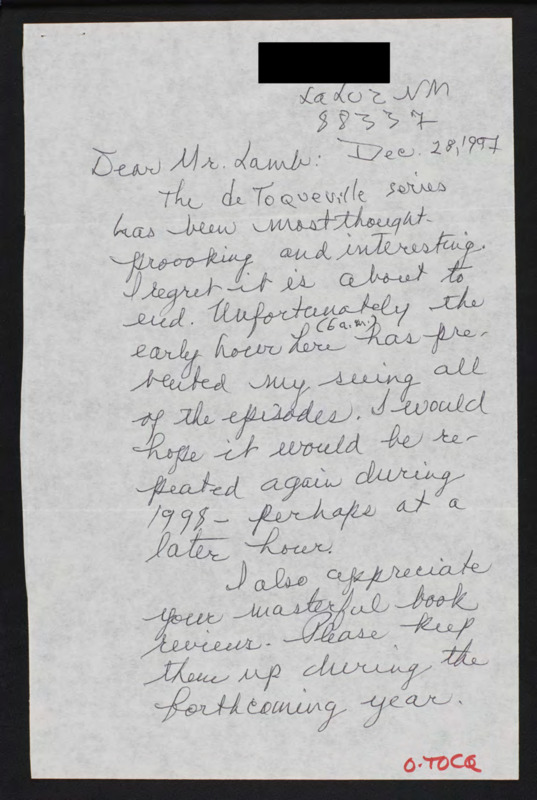 La Luz NM
88337
Dear Mr. Lamb: Dec. 28, 1997
The de Toqueville series
has been most thought-
provoking and interesting.
I regret it is about to
end. Unfortunately the
early hour here (6 a.m.) has pre-
vented my seeing all
of the episodes. I would
hope it would be re-
peated again during
1998 - perhaps at a
later hour.
I also appreciate
your masterful book
reviews. Please keep
them up during the
forthcoming year.
O-TOCQ